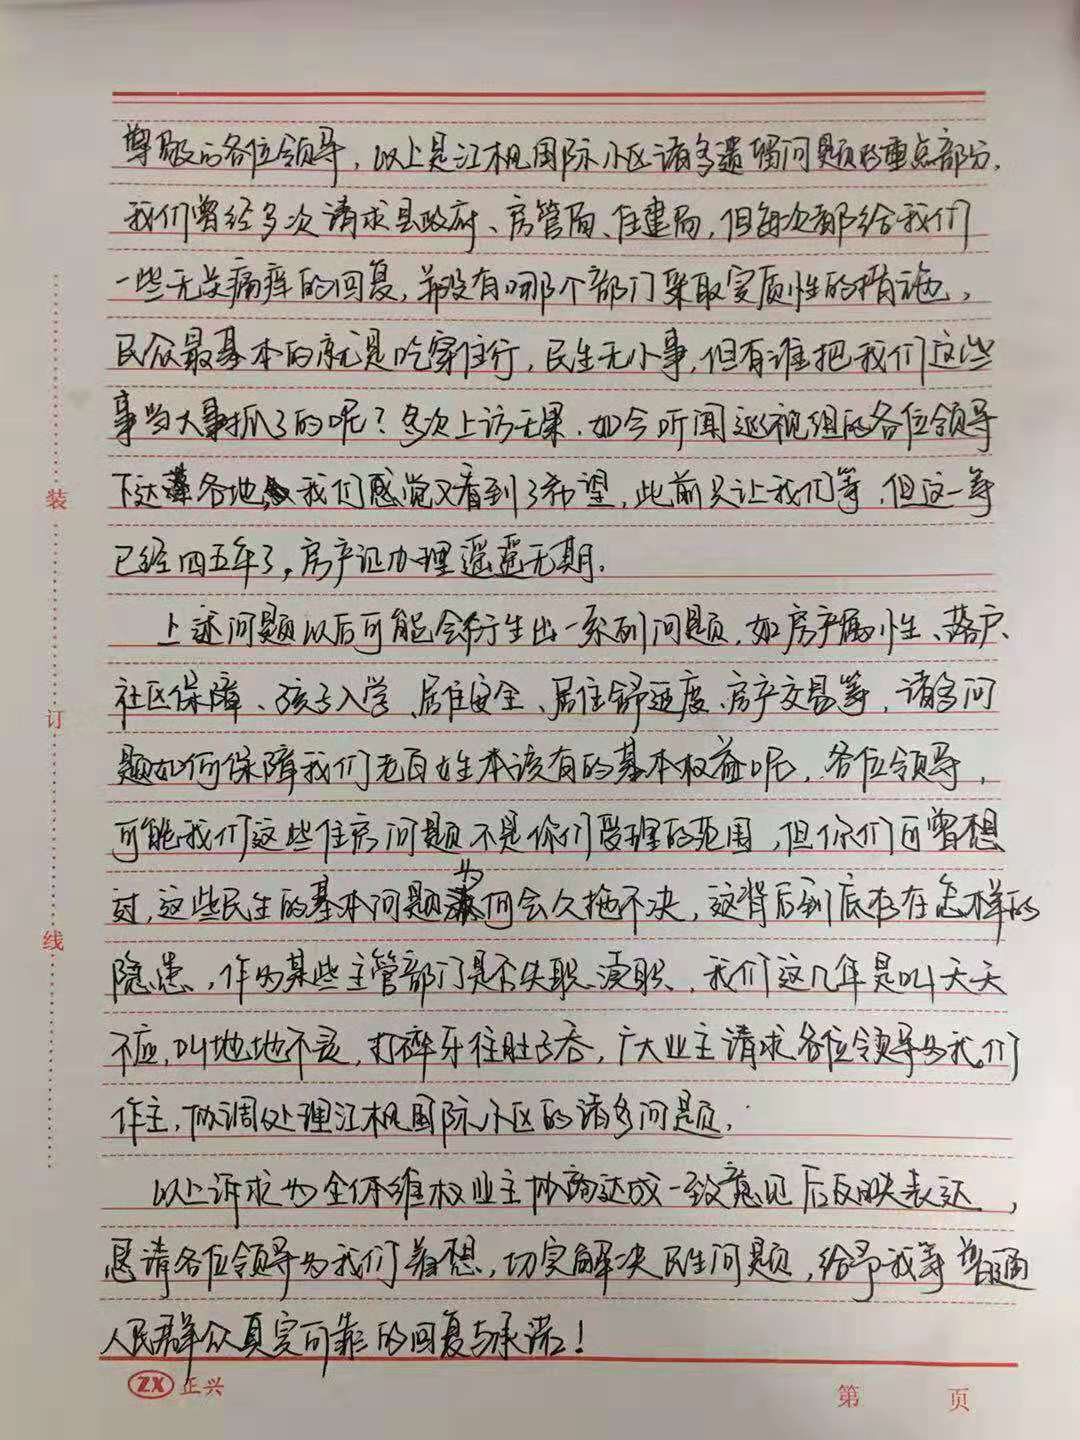 尊敬的各位领导，以上是江枫国际小区诸多遗留问题的重点部分，
我们曾经多次请求县政府、房管局、住建局，但每次都给我们
一些无关痛痒的回复，并没有哪个部门采取实质性的措施，
民众最基本的就是吃穿住行，民生无小事，但有谁把我们这些
事当大事抓了的呢？多次上访无果，如今听闻巡视组的各位领导
下达各地，我们感觉又看到了希望，此前只让我们等，但这一等
已经四五年了，房产证办理遥遥无期。
上述问题以后可能会衍生出一系列问题，如房产属性、落户、
社区保障、孩子入学、居住安全、居住舒适度、房产交易等，诸多问
题如何保障我们老百姓本该有的基本权益呢，各位领导，
可能我们这些住房问题不是你们受理的范围，但你们可曾想
过，这些民生的基本问题为何会久拖不决，这背后到底存在怎样的
隐患，作为某些主管部门是否失职、渎职，我们这几年是叫天天
不应，叫地地不灵，打碎牙往肚子吞，广大业主请求各位领导为我们
作主，协调处理江枫国际小区的诸多问题，
以上诉求为全体维权业主协商达成一致意见后反映表达，
恳请各位领导为我们着想，切实解决民生问题，给予我等普通
人民群众真实可靠的回复与承诺！
装
订
线
ZX 正兴
第 页